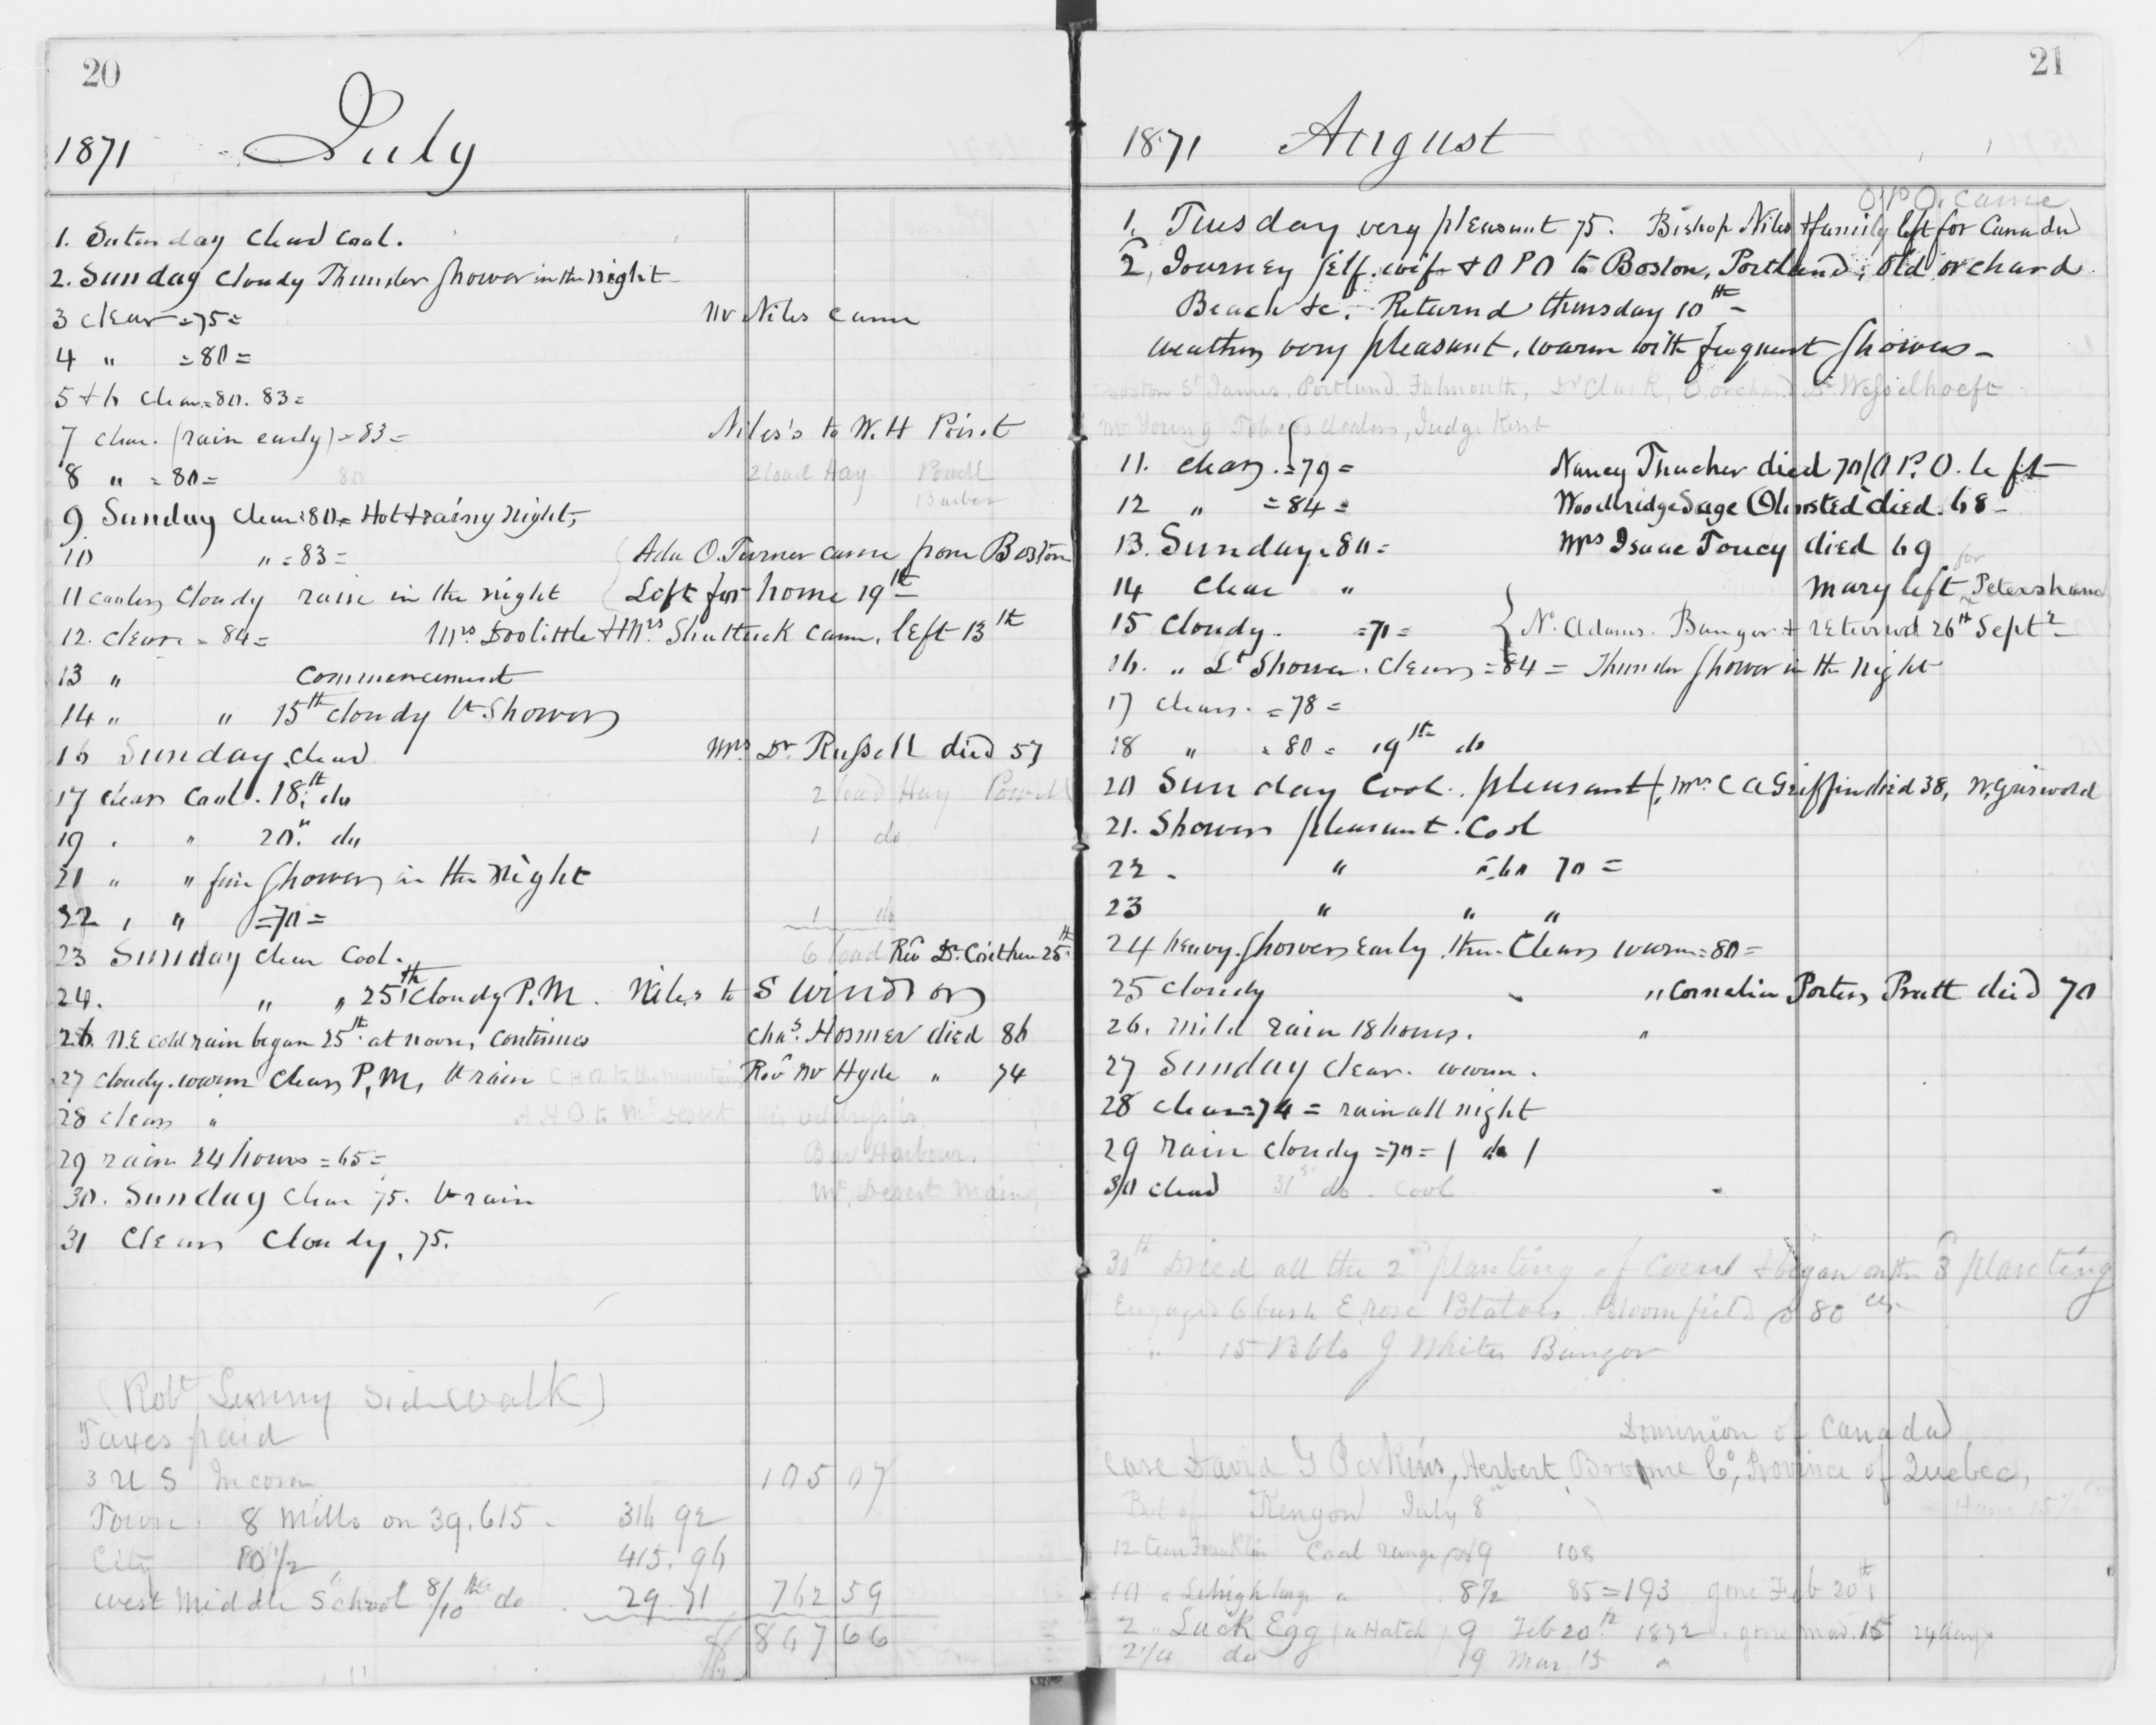 20
1871 July
1. Saturday Clear Cool.
2. Sunday Cloudy Thunder Shower in the night
3 clear =75= Mr Niles came
4 " =80=
5 & 6 Clear =80. 83=
7 clear. (rain early) =83= Niles's to W. H Point
8 " =80= 80 2 load Hay Powell
Barber
9 Sunday Clear :80= Hot & rainy night,
10 " =83= Ada O. Turner came from Boston
11 cooler, Cloudy rain in the night Left for home 19th
12. clear = 84= Mrs. Doolittle & Mrs Shuttuck came, left 13th
13 " Commencement
14 " " 15th cloudy lt Showers
16 Sunday, Clear Mrs Dr Russell died 57
17 clear Cool. 18th do 2 load Hay Powell
19 . " 20" do 1 do
21 " " fine Shower, in the Night
22 , " =70= 1 do
23 Sunday clear Cool. 6 load Revd Dr. 25th
24. " " 25th Cloudy P.M. Niles to S Windsor
26. N.E cold rain began 25th at noon, Continues Chas. Hosmer died 86
27 cloudy. warm Clear, P.M, lt rain C H O. to the mountains Revd Mr Hyde " 74
28 clear " A H O to Mt Desert his address is
29 rain 24 hours =65= Bar Harbour.
30. Sunday Clear 75. lt rain Mt. Desert Maine,
31 Clear Cloudy, 75.
(Robt Sidewalk)
Taxes paid
3 U S Incom 105 07
Town 8 Mills on 39.615. 316 92
City 10 1/2 " 415. 96
West Middle School 8/10ths do 29.71 762 59
867 66
21
1871 August
O.P.O. came
1. Tuesday very pleasant 75. Bishop Niles & family left for Canada
2, Journey self. wife & O P O to Boston, Portland, Old orchard
Beach &c. Returnd thursday 10th
weather, very pleasant, warm with frequent Showers
Boston St James, Portland Falmouth, Dr Clark, O. orchard Dr Wesselhoeft
Mr Young Tobacco dealers, Judge Kent
11. Clear. =79= Nancy Thacher died 70 / O P. O. left
12 " =84= Woodbridge Sage Olmsted died. 68
13. Sunday. 80= Mrs Isaac Toucy died 69
14 Clear " Mary left for Petersham
15 Cloudy. =71= { No. Adams. Bangor & returned 26th Sept
16. " Lt Shower. Clear, =84= Thunder Shower in the night
17 Clear. =78=
18 " =80= 19th do
20 Sunday Cool. pleasant, Mrs C A Griffin died 38, N, Griswold
21. Showers pleasant. Cool
22 . " =60 70=
23 " " "
24 heavy. Showers Early. then. Clear, warm =80=
25 cloudy " Cornelia Porter, Pratt died 70
26. mild rain 18 hours. "
27 Sunday Clear. warm.
28 clear =74= rain all night
29 rain cloudy =70= / do /
30 clear 31st do. Cool
30th Dried all the 2d planting of Corn & began on the 3 planting
Engaged 6 bush E. rose Potatoes Bloomfield @ 80 cts
" 15 Bbls J Whites Bangor
Dominion of Canada
Care David G Perkins, Herbert, Broome Co, Province of Quebec,
Bot of Kenyon July 8
12 tun Franklin Coal range @ 9 108
10 " Lehigh large " 8 1/2 85=193 gone Feb 20th
2 " Lack Egg ( a Hatch ) 9 Feb 20th 1872. gone Mar. 15 24 days
2 1/4 do 19 Mar 15 "